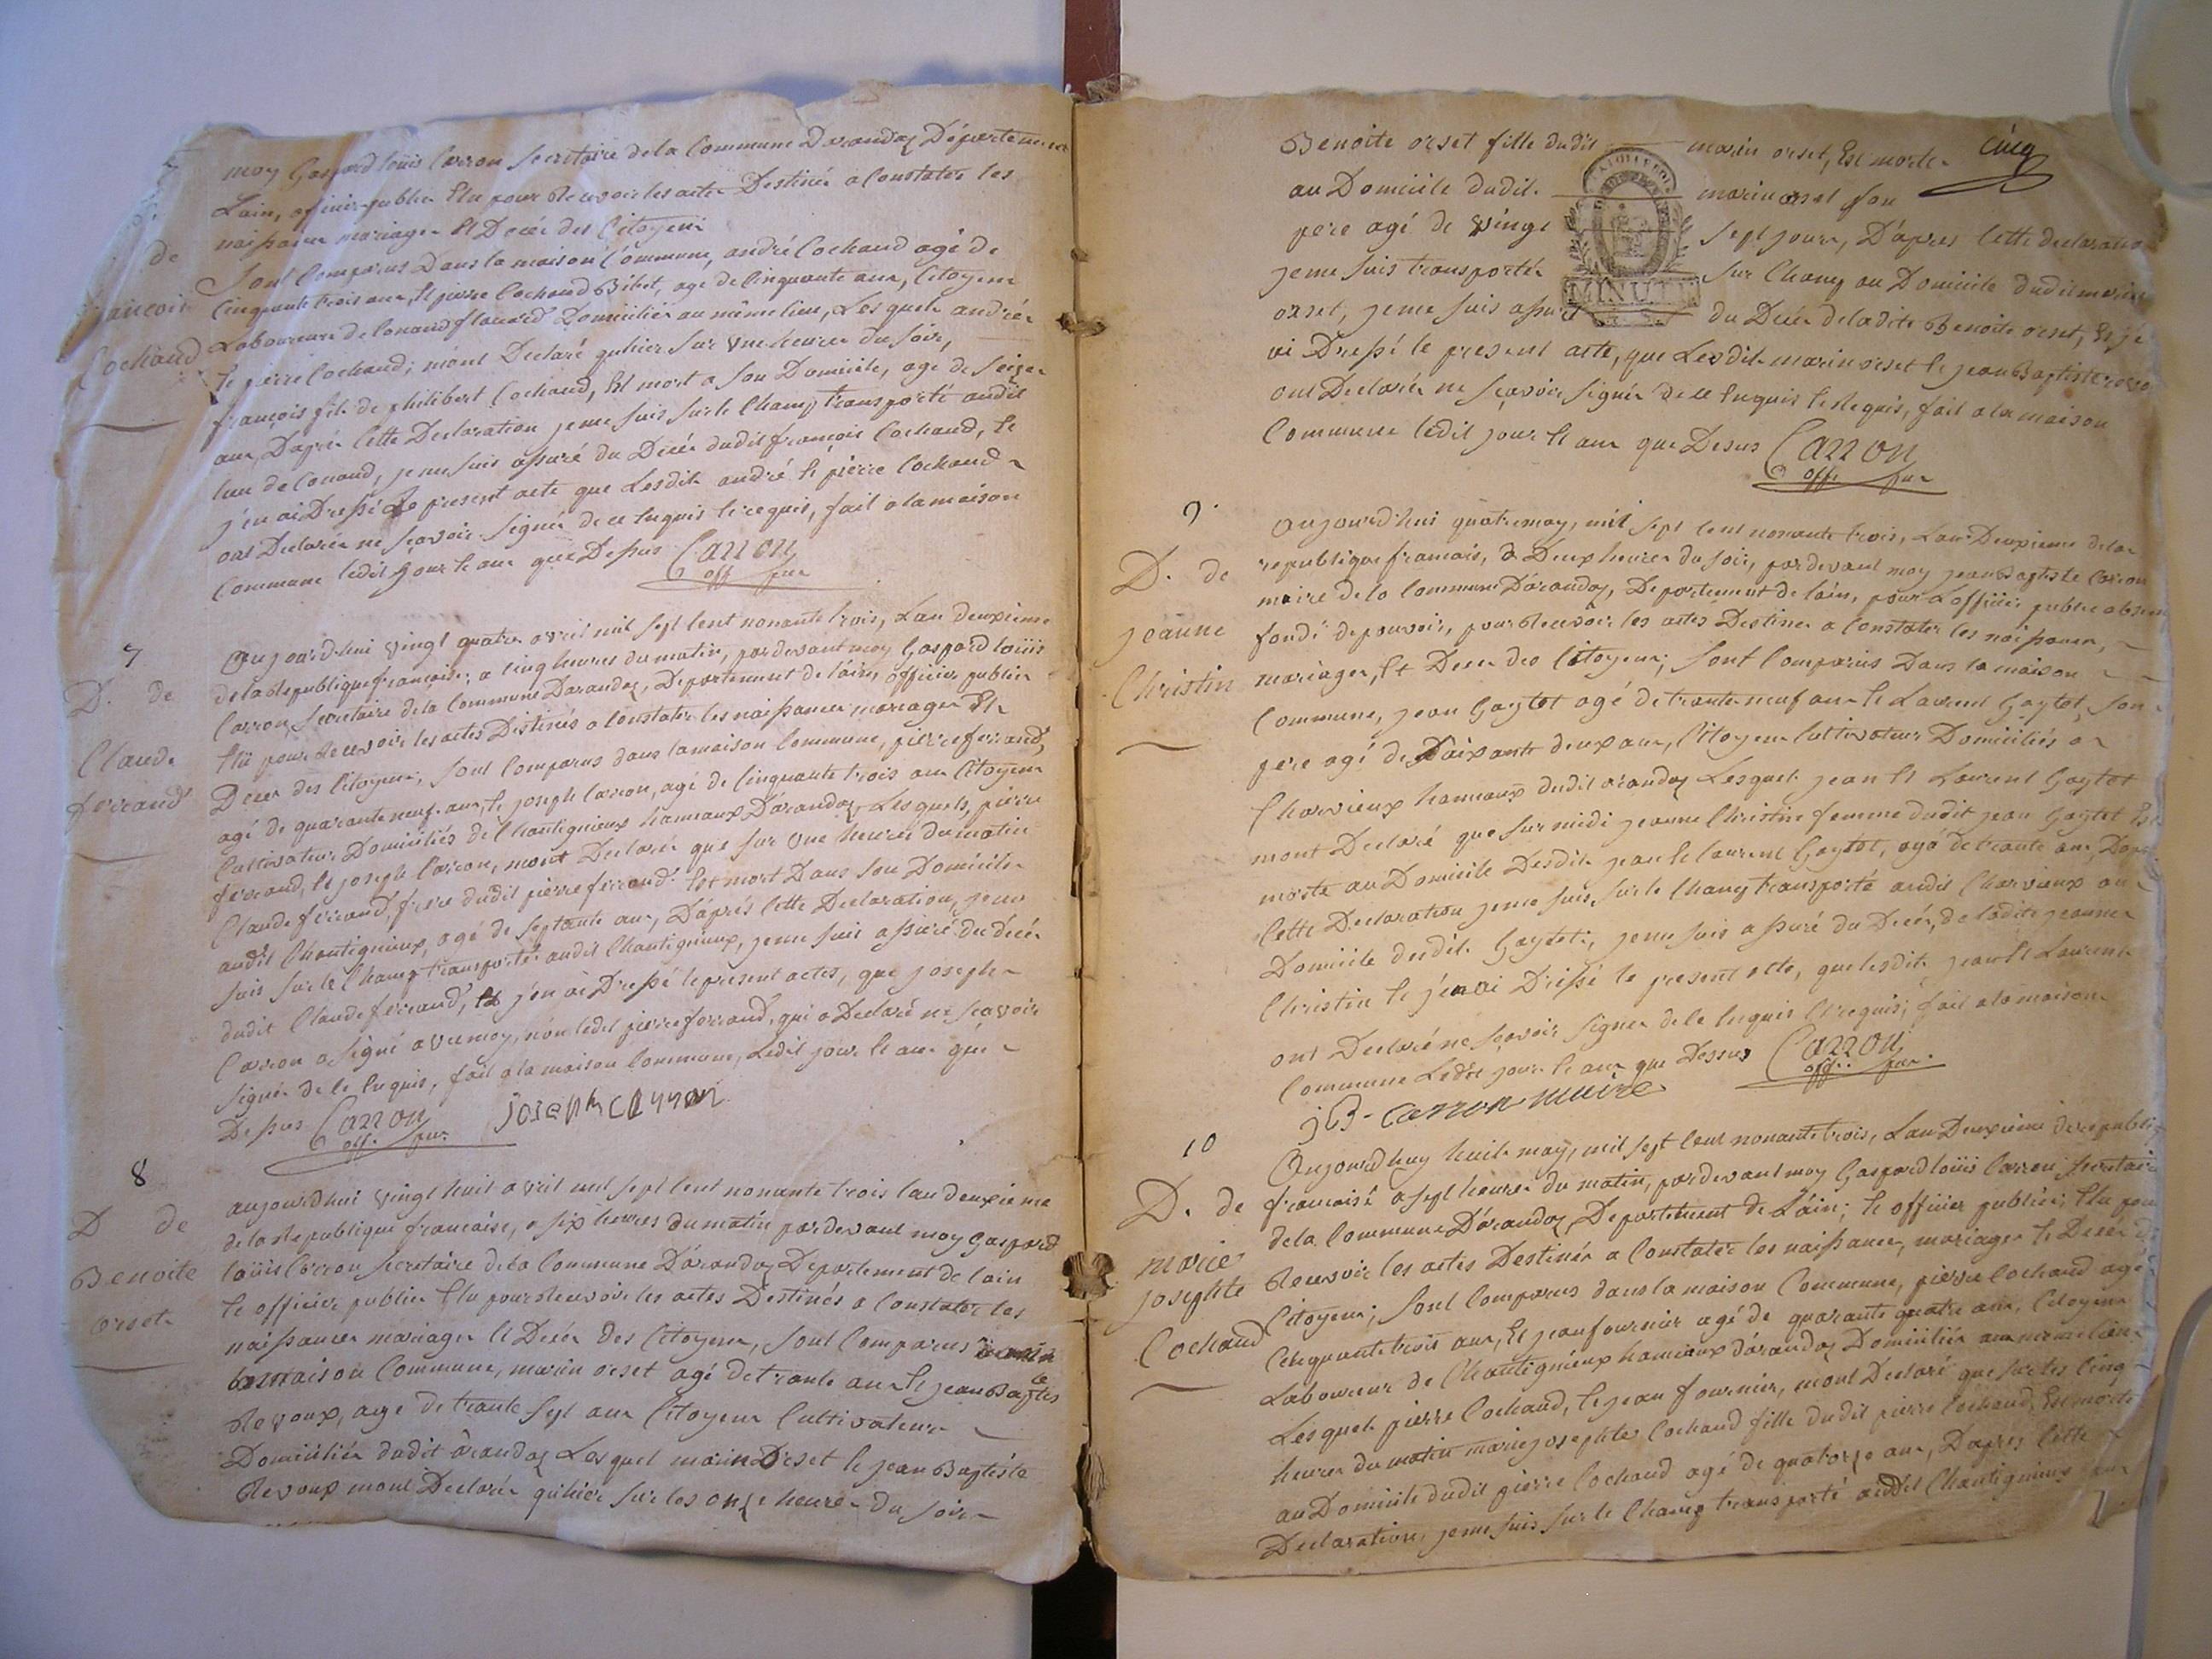 moy Gaspard loüis Carron Secretaire dela Commune Darandaz Département
Lain, officier public Elu pour Recevoir les actes Destinés a Constater les
naissances mariages Et Decés des Citoyens
de
Sont Comparus Dans la maison Commune, andré Cochaud agé de
Cinquante trois ans, Et pierre Cochaud Bibet, age de Cinquante ans, Citoyens
françois
Laboureurs de Conand Domiciliés au même lieu, Lesquels andrés
Cochaud
Et pierre Cochaud, mont Declaré quhier Sur Une heures du soir,
françois fils de philibert Cochaud, Est mort a Son Domicile, age de Seize
ans, Dapres Cette Declaration je me suis sur le Champ transporté audit
lieu de Conand, je me suis assuré du Decés dudit françois Cochaud, Et
j'en ai Dressé Le present acte que Lesdits andré Et pierre Cochaud
ont Declarés ne sçavoir Signer de ce Enquis Et requis, fait a la maison
Commune ledit jour Et an que Dessus Carron
off pub
7
Aujourdhui vingt quatre avril mil sept Cent nonante trois, Lan deuxieme
D. de
de la Republique françaises, a Cinq heures du matin, pardevant moy Gaspard loüis
Carron, Secretaire dela Commune Darandaz, Departement de láin, officier public
Claude
Elü pour Recevoir les actes Destinés a Constater les naissances mariages Et
ferrand
Decés des Citoyens, Sont Comparus dans la maison Commune, pierre ferrand,
agé de quarante neuf ans, Et joseph Carron, agé de Cinquante trois ans Citoyens
Cultivateurs Domiciliés de Chantignieux hameaux Darandaz, Lesquels, pierre
ferrand, Et joseph Carron, mont Declarés que sur une heures du matin
Claude ferrand, frere dudit pierre ferrand Est mort Dans Son Domicile
audit Chantignieux, agé de Septante ans, D'aprés Cette Declaration, je me
suis sur le Champ transporté audit Chantignieux, je me suis assuré du décés
dudit Claude ferrand, Et j'en ai Dressé le present actes, que joseph
Carron a signé avec moy, non ledit pierre ferrand, qui a Declaré ne sçavoir
signer de Ce Enquis, fait a la maison Commune, Ledit jour Et an que
Dessus Carron off. pub. joseph carron
8
aujourdhui vingt huit avril mil sept Cent nonante trois lan deuxieme
D de
de la Republique francaise, a six heures du matin pardevant moy Gaspard
Benoite
loüis Carron Secretaire de la Commune D'arandaz Departement de lain
orset
Et officier public Elu pour Recevoir les actes Destinés a Constater les
naissances mariages Et Decés Des Citoyens, Sont Comparus
la maison Commune, marin orset agé de trante ans Et jean Baptiste
Revoux, age de trante sept ans Citoyens Cultivateurs
Domiciliés dudit arandaz Lesquel marin Orset Et jean Baptiste
Revoux mont Declarés quhier sur les onze heures du soir
cinq
Benoite orset fille dudit marin orset, Est morte
au Domicile dudit marin orset Son
pere agé de vingt sept jours, D'apres Cette declaration
je me suis transporté sur Champ au Domicile dudit marin
MINUTE
orset, je me suis assuré du Decés de ladite Benoite orset, Et jé
ai Dressé le present acte, que Lesdits marin orset Et jean Baptiste revoux
ont Declarés ne sçavoir signer de ce Enquis Et Requis, fait a la maison
Commune ledit jour Et an que Desus Carron
off. pub
9.
Aujourd'hui quatre may, mil sept Cent nonante trois, Lan Deuxieme de la
D. de
republique francais, a Deux heures du soir, pardevant moy jean Baptiste Carron
maire de la Commune D'arandaz, Departement de láin, pour Lofficier public absent
jeanne
fondé de pouvoir, pour Recevoir les actes Destiner a Constater les naissances,
Christin
mariages, Et Decés des Citoyens; Sont Comparus Dans la maison
Commune, jean Gaytet agé de trante neuf ans Et Laurent Gaytet, Son
pere agé de Soixante deux ans, Citoyens Cultivateurs Domiciliés a
Charvieux hameaux dudit arandaz Lesquels jean Et Laurent Gaytet
mont Declaré que Sur midi jeanne Christin femme dudit jean Gaytet Est
morte au Domicile Desdits jean Et laurent Gaytet, agé de trante ans, Dapres
Cette Declaration je me suis, sur le Champ transporté audit Charvieux au
Domicile dudits Gaytets, je me suis assuré du Decés, de ladite jeanne
Christin Et j'en ai Dressé le present acte, que lesdits jean Et Laurent
ont Declaré ne sçavoir signer de Ce Enquis Et requis; fait a la maison
Commune Ledit jour Et an que Dessus Carron
off. pub.
jB. Carron maire
10
Aujourdhuy huit may, mil sept Cent nonante trois, Lan Deuxieme de republique
D. de
francaisé a sept heures du matin, pardevant moy Gaspard loüis Carron, Secretaire
de la Commune D'arandaz Departement de Láin; Et officier public; Elu pour
marie
Recevoir les actes Destinés a Constater les naissances, mariages Et Decés des
josephte
Citoyens; Sont Comparus dans la maison Commune, pierre Cochaud agé
Cochaud
Cinquante trois ans, Et jean fournier agé de quarante quatre ans, Citoyens
Laboureurs de Chantignieux hameaux d'arandaz Domiciliés au meme lieu
Lesquels pierre Cochaud, Et jean fournier, mont Declaré que sur les Cinq
heures du matin marie josephte Cochaud fille dudit pierre Cochaud, Est morte
au Domicile dudit pierre Cochaud agé de quatorze ans, Dapres Cette
Declaration, je me suis sur le Champ transporté audit Chantignieux